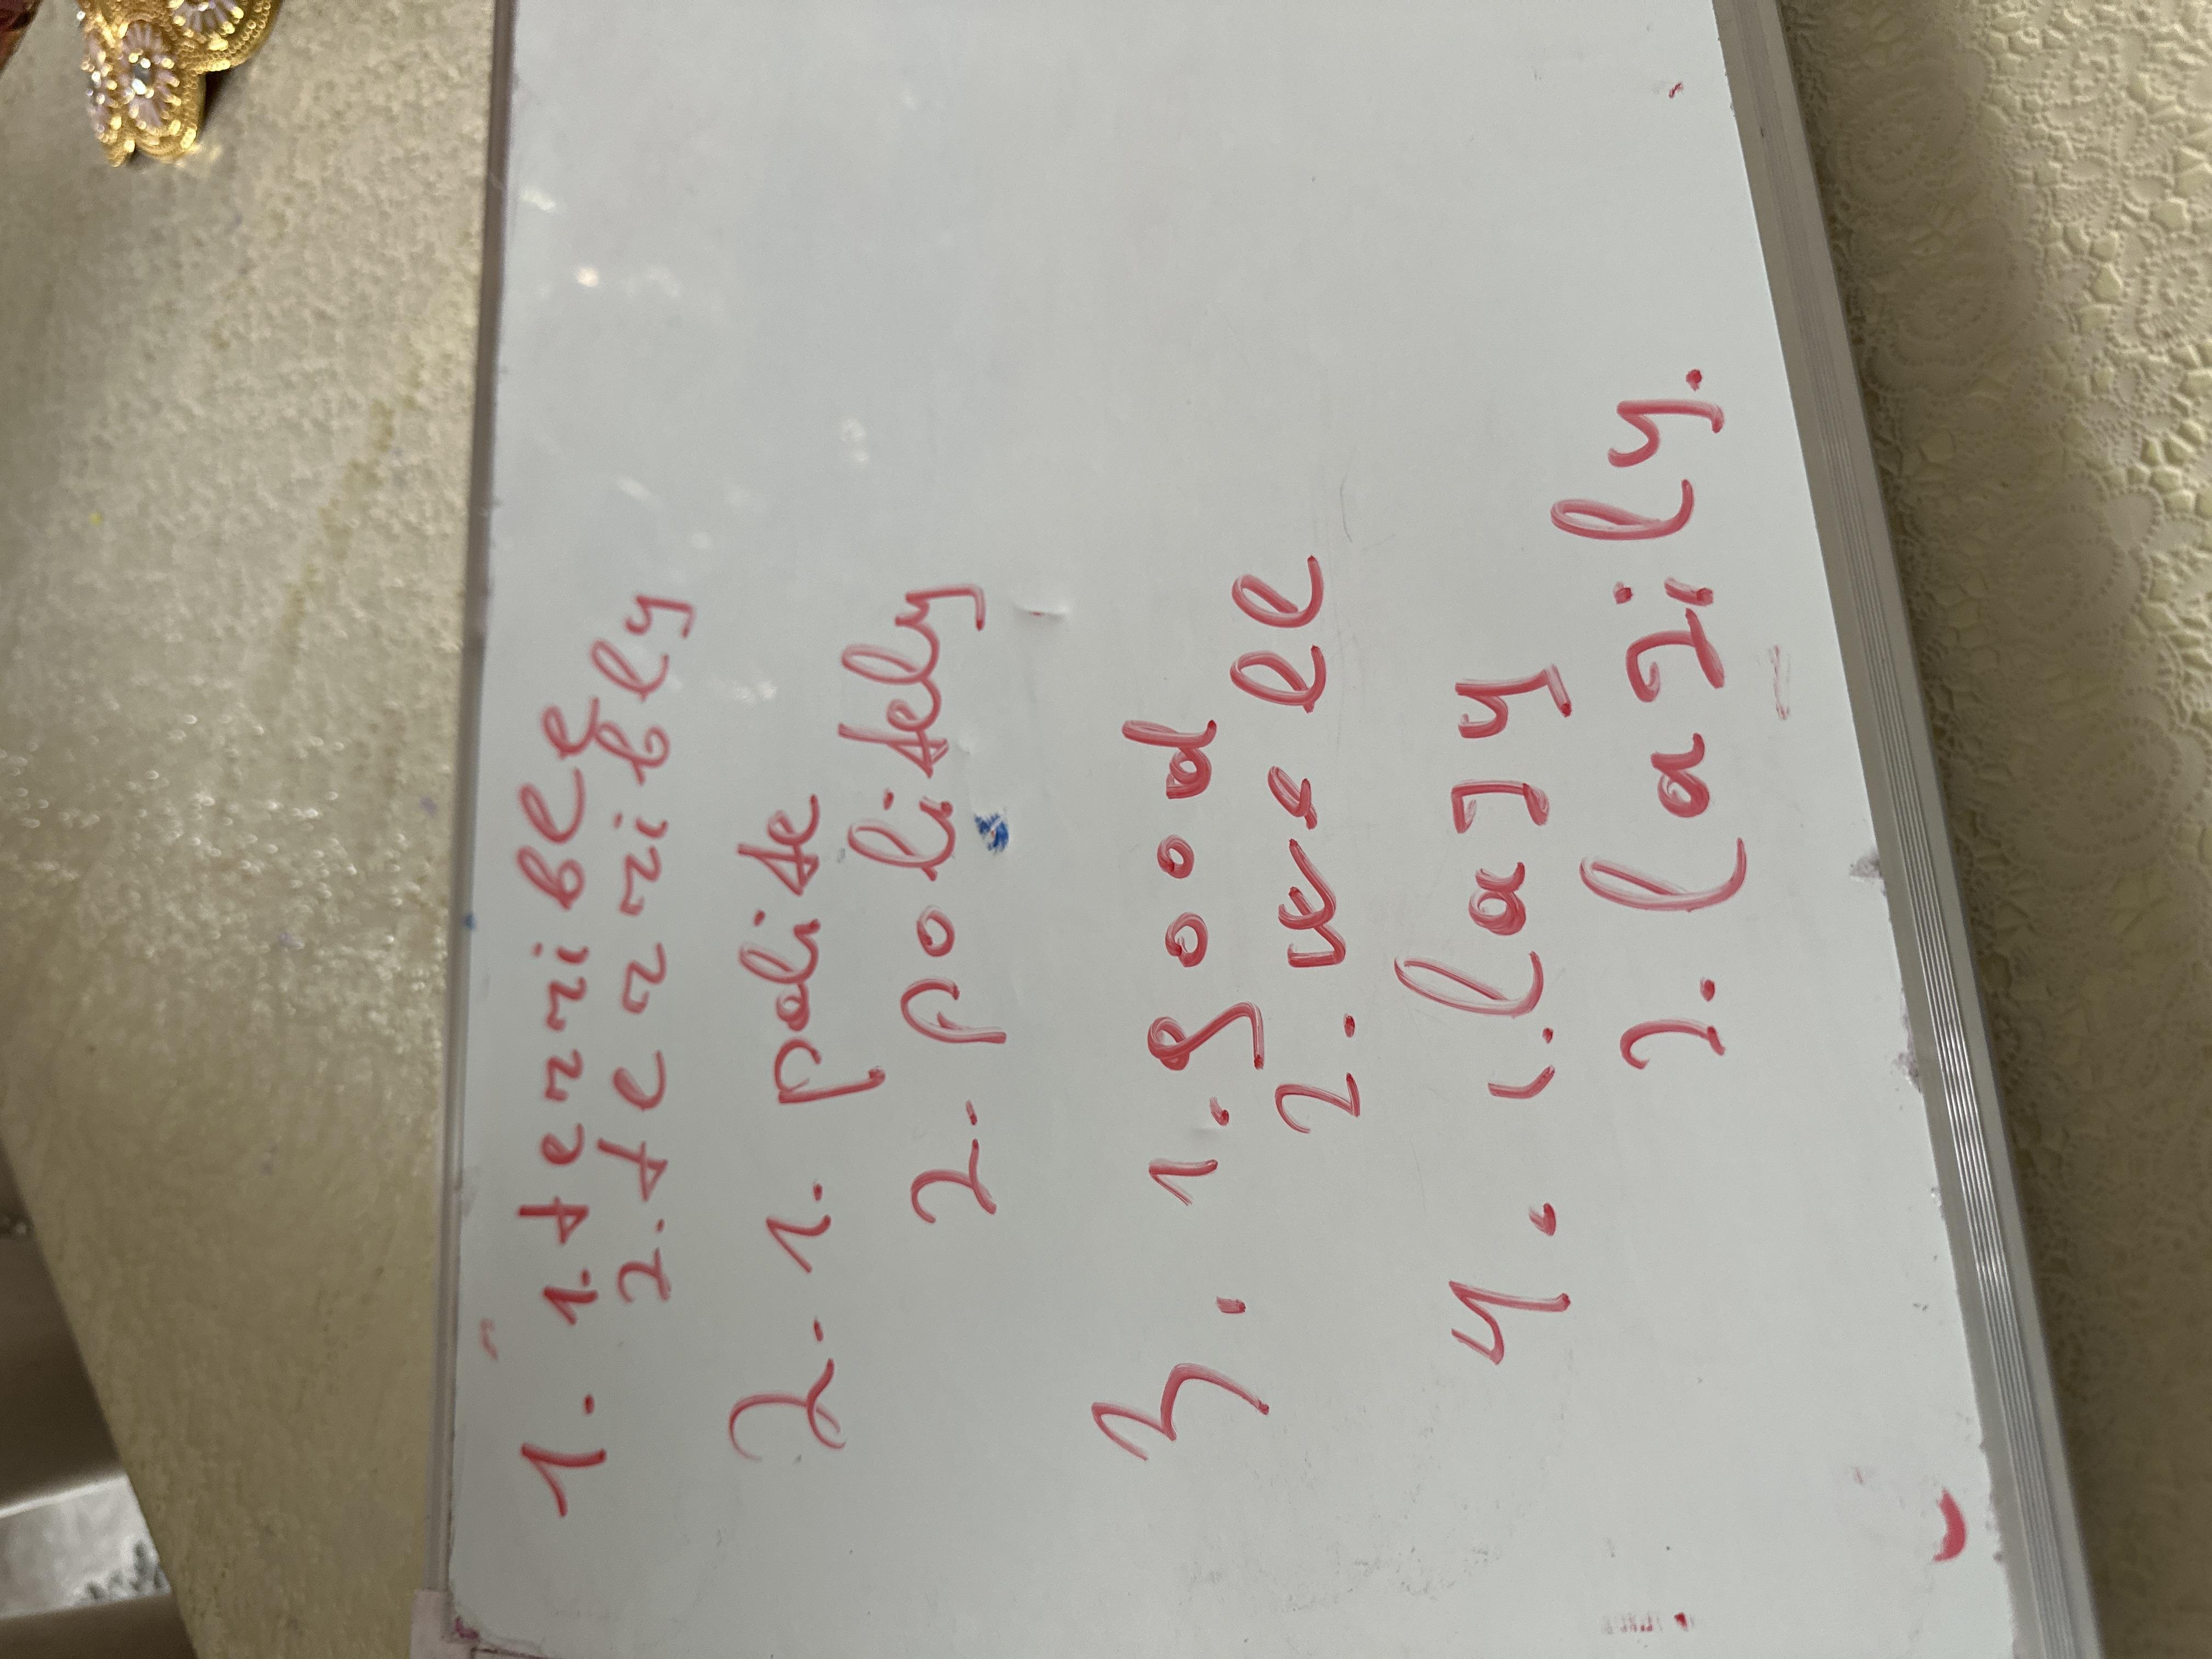 1. 1. terrible
2. terribly
2. 1. polite
2. politely
3. 1. good
2. well
4. 1. lazy
2. lazily.